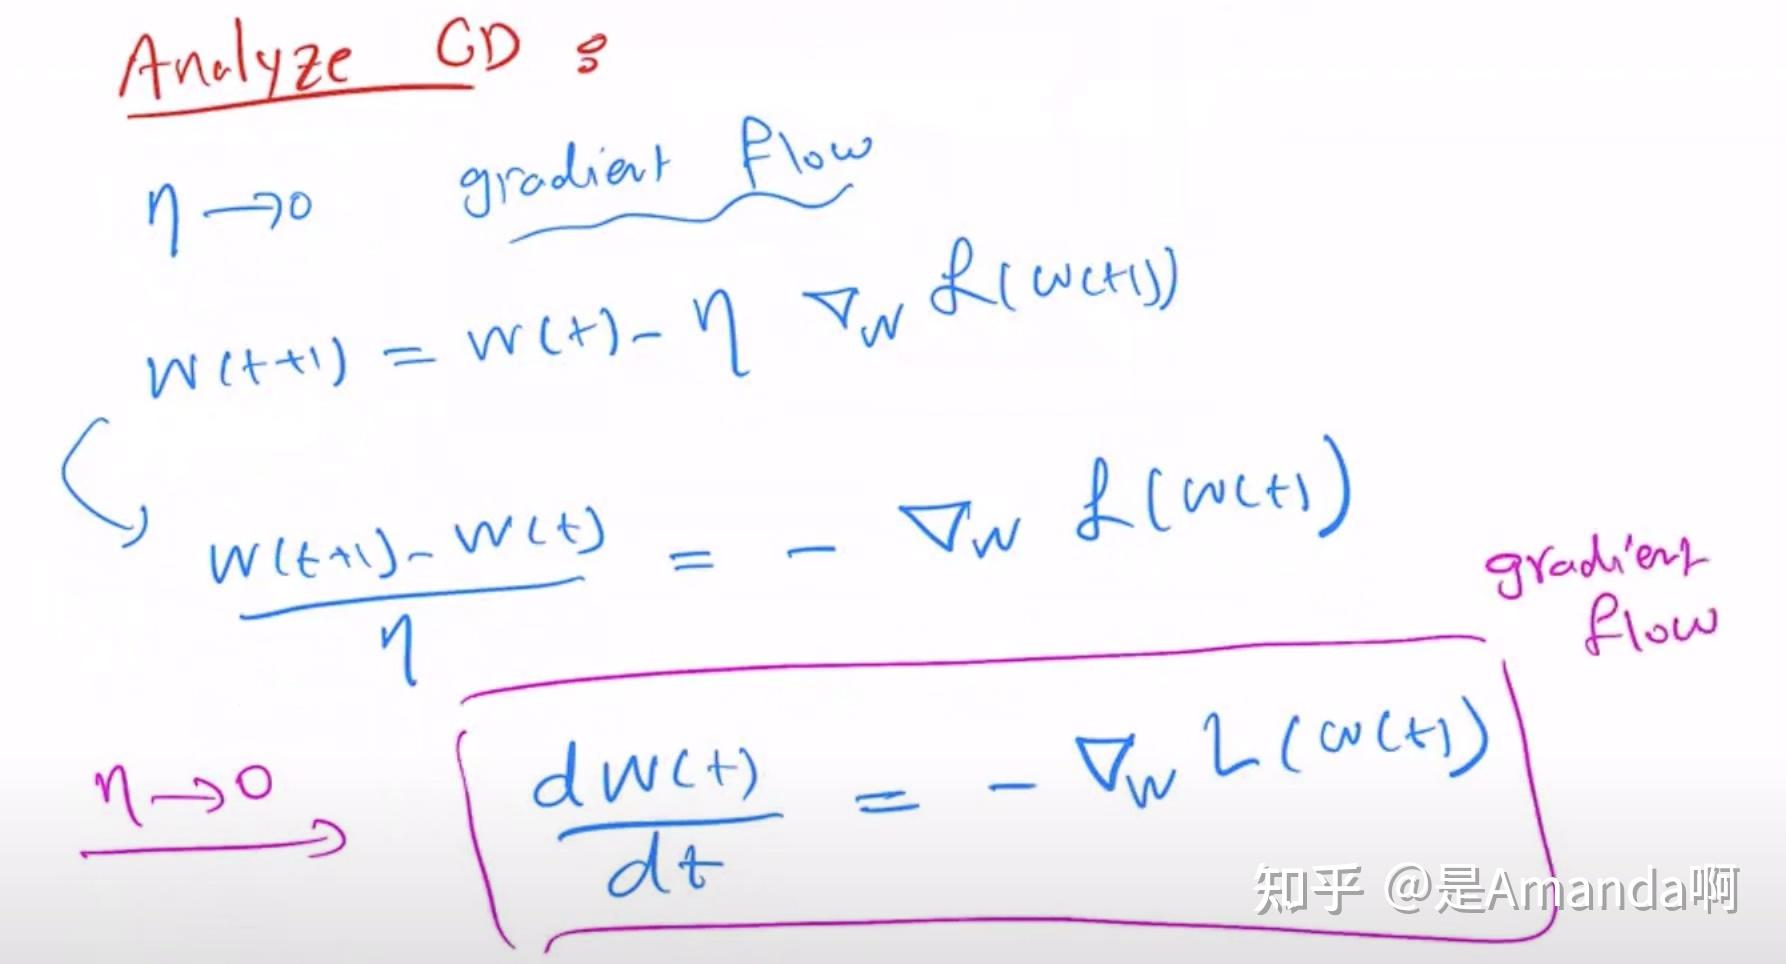 Analyze GD :
η → 0 gradient flow
w(t+1) = w(t) - η ∇_w ℒ(w(t))
w(t+1) - w(t) / η = - ∇_w ℒ(w(t))
gradient flow
η → 0
dw(t) / dt = - ∇_w L(w(t))
知乎 @是Amanda啊